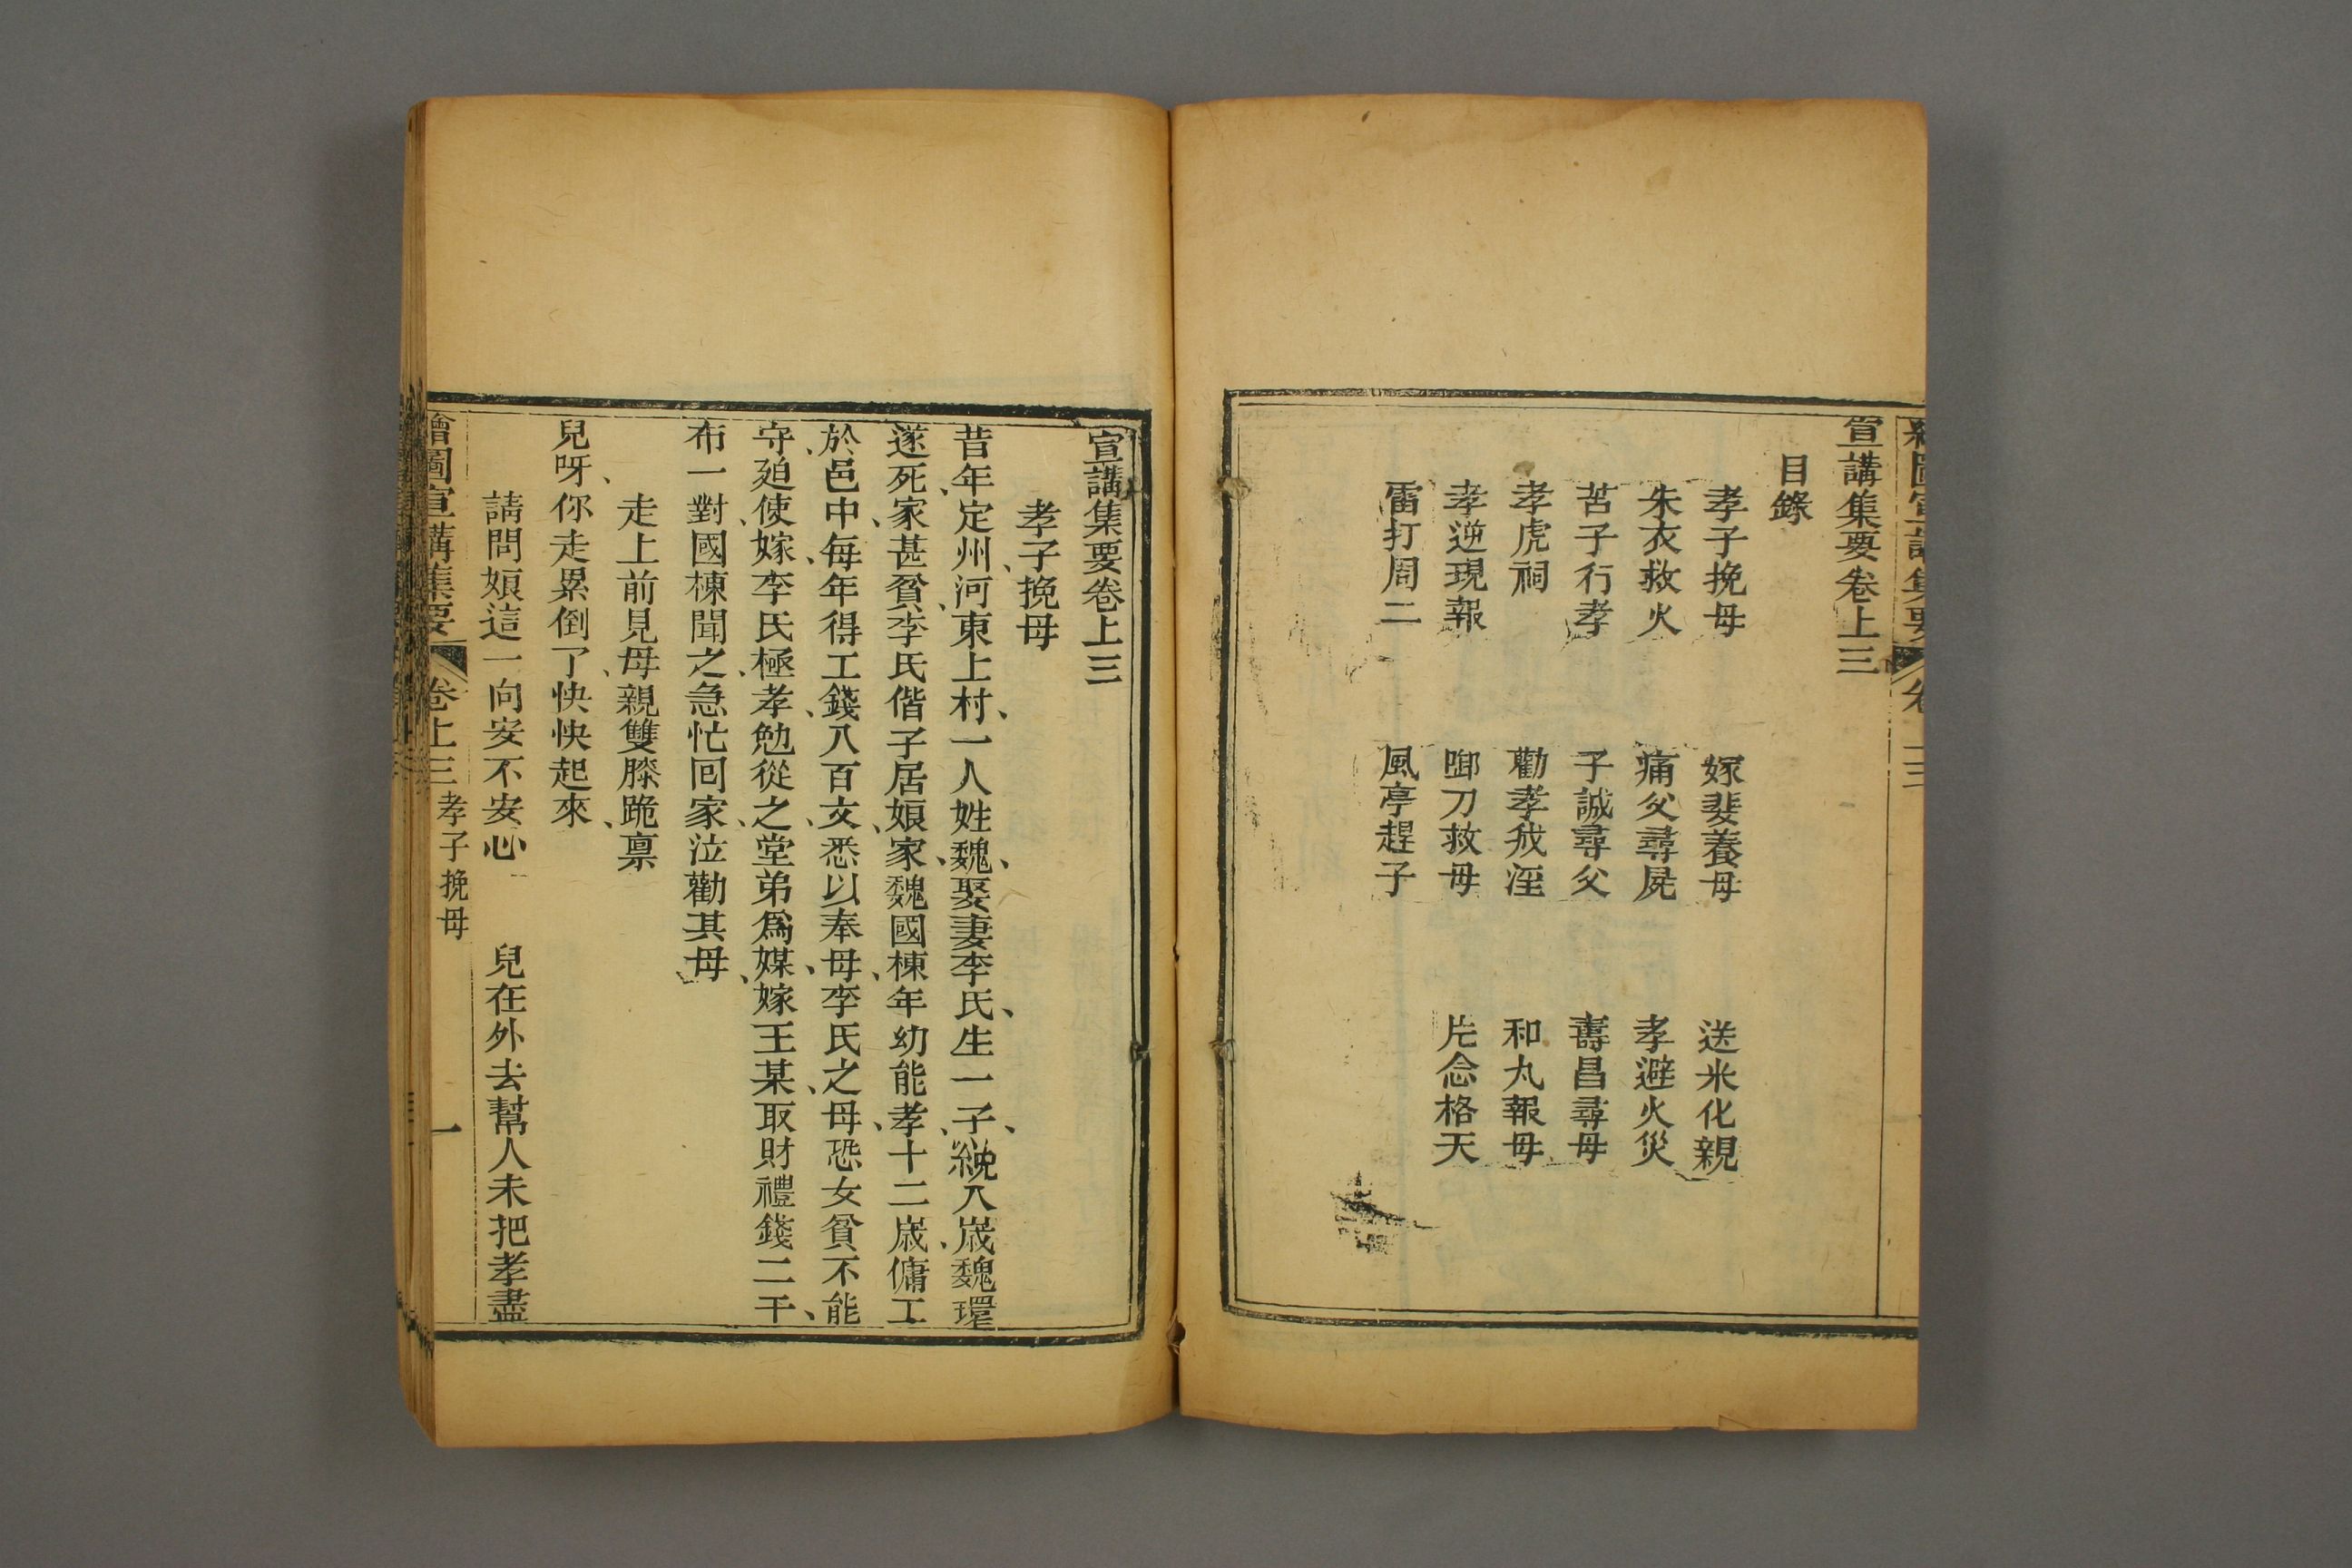 宣講集要卷上三
目錄
孝子挽母　嫁婓養母　送米化親
朱衣救火　痛父尋屍　孝避火災
苦子行孝　子誠尋父　壽昌尋母
孝虎祠　勸孝戒淫　和丸報母
孝逆現報　啣刀救母　片念格天
雷打周二　風亭趕子
宣講集要卷上三
孝子挽母
昔年、定州、河東上村、一人姓魏、娶妻李氏、生一子、纔八歲、魏環
遂死、家甚貧、李氏偕子居娘家、魏國棟年幼能孝、十二歲傭工
於邑中、每年得工錢八百文、悉以奉母、李氏之母、恐女貧不能
守、廹使嫁、李氏極孝、勉從之、堂弟爲媒、嫁王某、取財禮錢二千、
布一對、國棟聞之、急忙回家、泣勸其母、
走上前見母親雙膝跪禀
兒呀、你走累倒了、快快起來、
請問娘這一向安不安心　兒在外去幫人未把孝盡
繪圖宣講集要　卷上三　孝子挽母　一